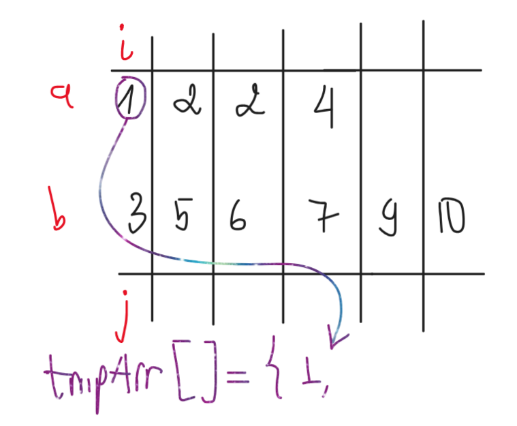 i
a 1 2 2 4
b 3 5 6 7 9 10
j
tmpArr[]={1,